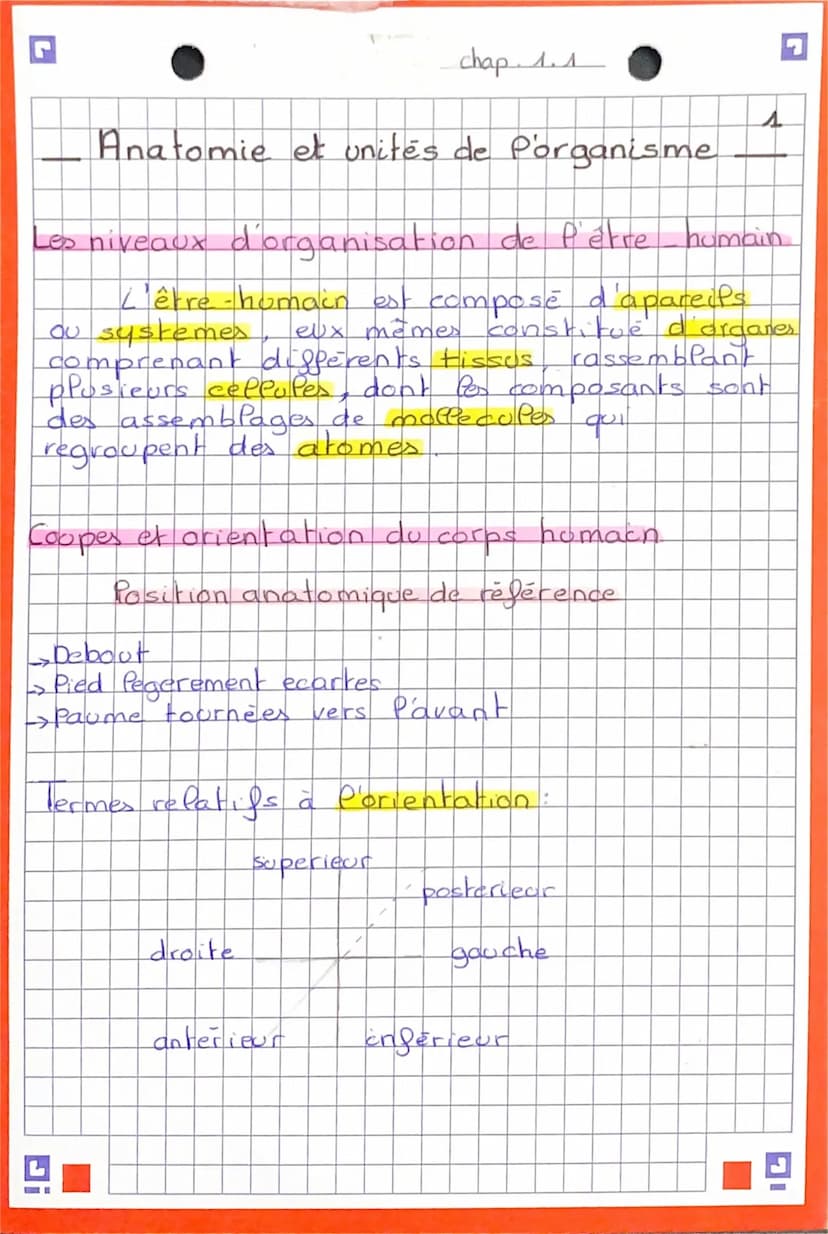 chap. 1.1
1
Anatomie et unités de l'organisme
Les niveaux d'organisation de l'être-humain
L'être-humain est composé d'apareils
ou systemes, eux mêmes constitué d'organes
comprenant différents tissus, rassemblant
plusieurs cellules, dont les composants sont
des assemblages de mollecules qui
regroupent des atomes.
Coupes et orientation du corps humain
Position anatomique de référence
→Debout
→Pied legerement ecartes
→Paume tournées vers l'avant
Termes relatifs à l'orientation :
superieur
posterieur
droite
gauche
antérieur
inférieur